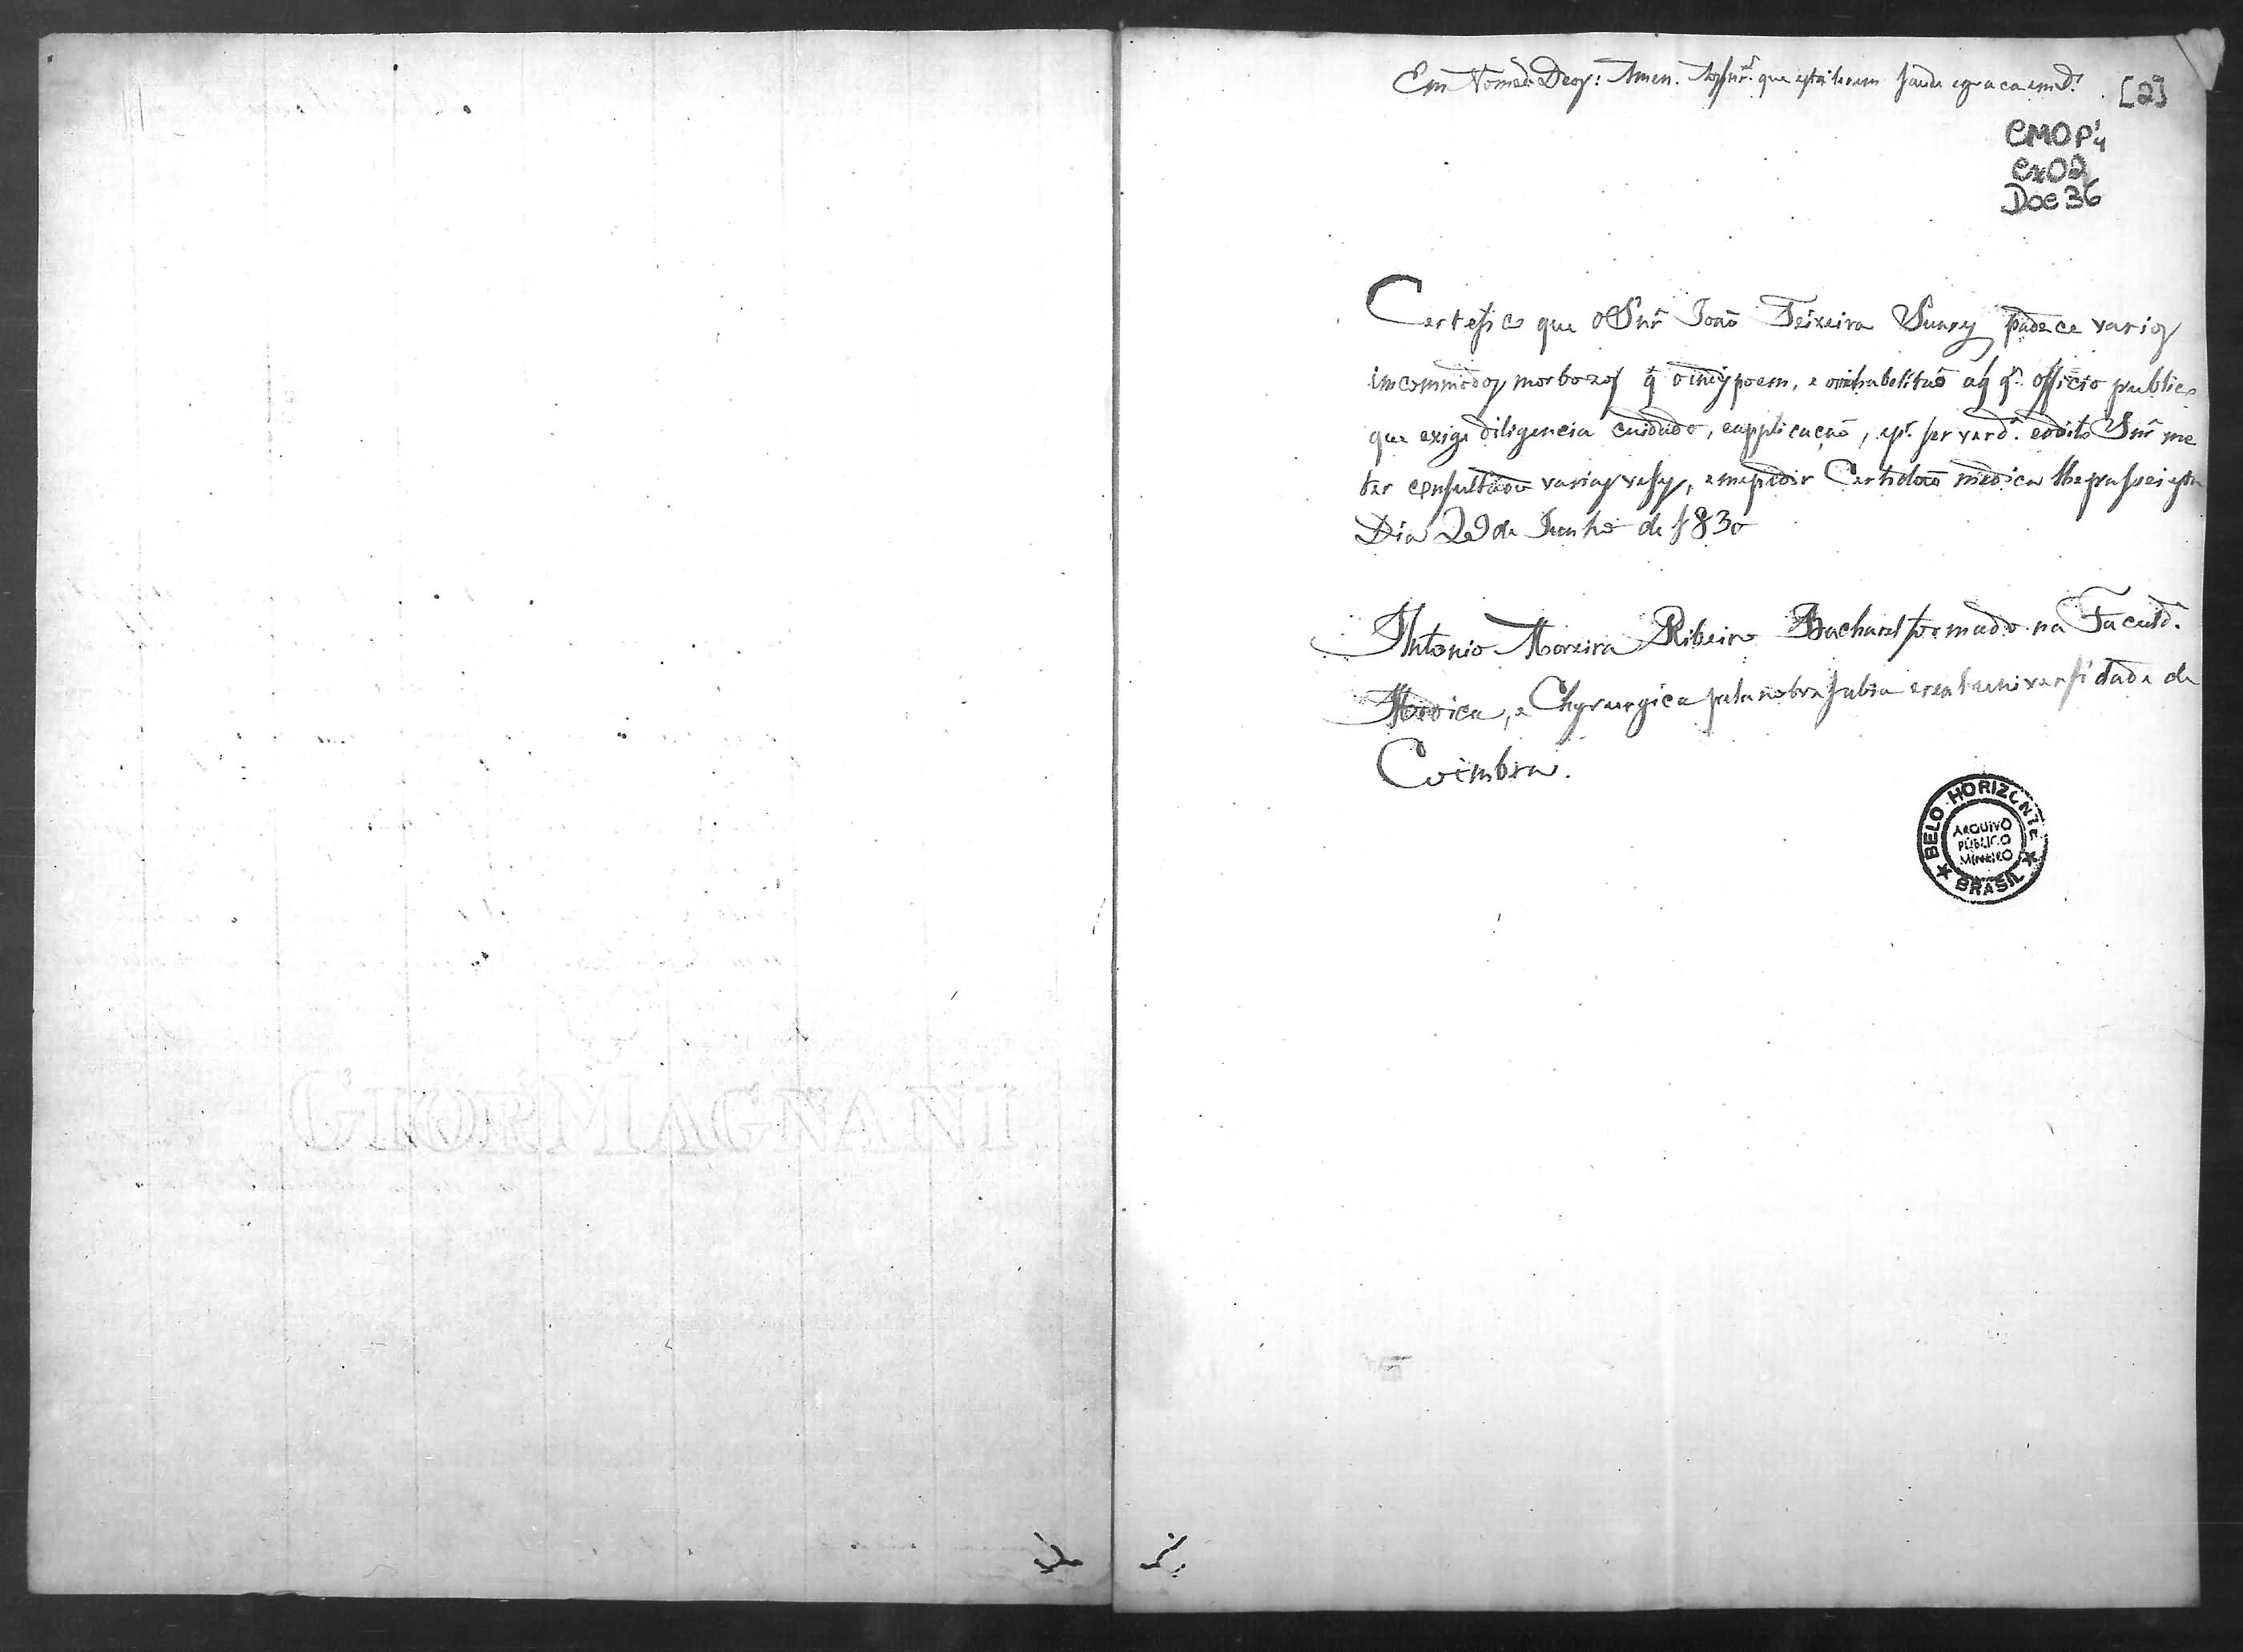 Em Nome de Deos: Amen. que esta lerem saude e graca em D.^s
[2]
CMOP'4
Cx02
Doc 36
Certefico que o Snr̃ Joaõ Teixeira Suares padece varios
imcommodos morbozos q̃ o indispoem, e o inhabelitaõ a q.^l q.^r officio publico
que exige diligencia cuidado, e applicaçaõ, e p.^r ser verd.^e e o dito Snr̃ me
ter consultado varias veses, e me pedir Certidaõ medica lhe passei esta
Dia 29 de Junho de 1830
Antonio Moreira Ribeiro Bacharel formado na Faculd.^e
Medica, e Chyrurgica pela nobre sabia e real universidade de
Coimbra.
BELO HORIZONTE
ARQUIVO
PÚBLICO
MINEIRO
★ BRASIL ★
GIOR MAGNANI